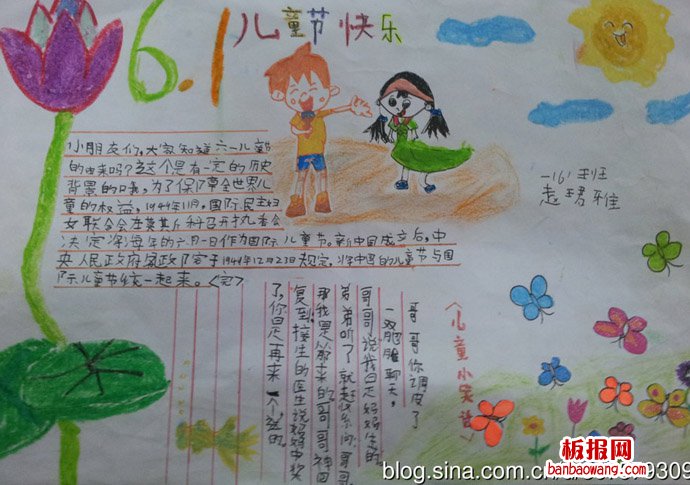 6.1儿童节快乐
小朋友们,大家知道六一儿童节
的由来吗?这个是有一定的历史
背景的哦,为了保障全世界儿
童的权益,1949年11月,国际民主妇
女联合会在莫斯科召开执委会
决定将每年的六月一日作为国际儿童节。新中国成立后,中
央人民政府家政院于1949年12月23日规定,将中国的儿童节与国
际儿童节统一起来。(完)
一16)班
赵珺雅
(儿童小笑话)
哥哥你调皮了
一双胞胎聊天,
哥哥说我是妈妈生的
弟弟听了就赶快问哥哥
那我是那来的哥哥神回
复到接生的医生说妈妈中奖
了,你是再来一个送的
板报网
banbaowang.com
blog.sina.com.cn/
9309